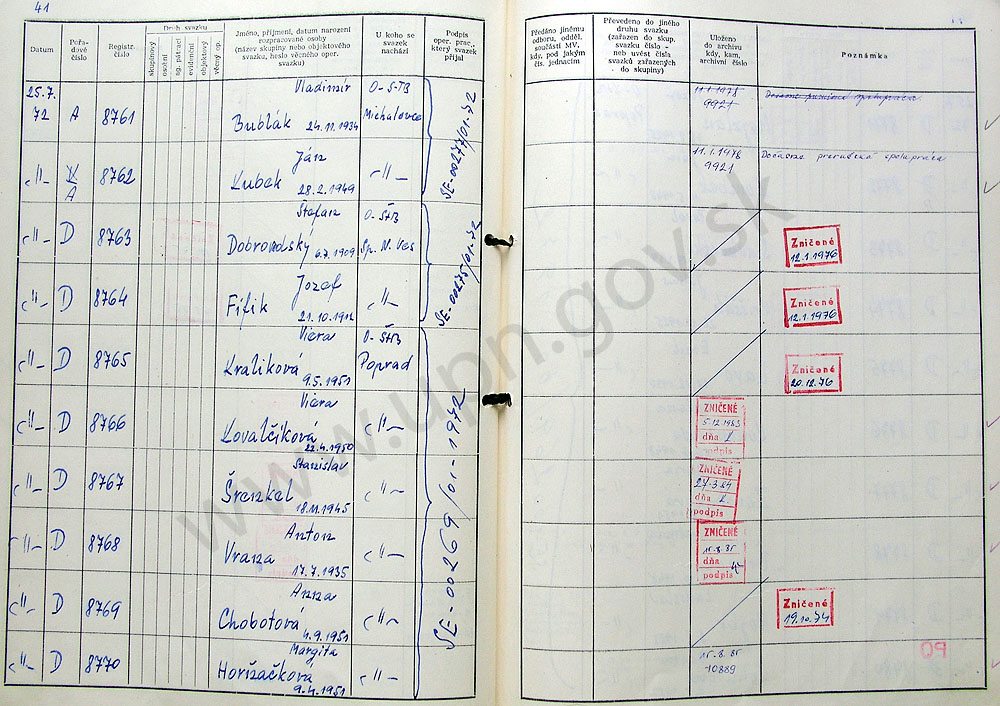 41
Datum
Pořa-
dové
číslo
Registr.
číslo
Druh svazku
skupinový
osobní
sg. pátrací
evidenční
objektový
věcný op.
Jméno, příjmení, datum narození
rozpracované osoby
(název skupiny nebo objektového
svazku, heslo věcného oper.
svazku)
U koho se
svazek
nachází
Podpis
oper. prac.,
který svazek
přijal
Předáno jinému
odboru, odděl.
součásti MV,
kdy, pod jakým
čís. jednacím
Převedeno do jiného
druhu svazku
(zařazen do skup.
svazku číslo -
neb uvést čísla
svazků zařazených
do skupiny)
Uloženo
do archivu
kdy, kam,
archivní číslo
Poznámka
25.7.
72 A 8761 Vladimír
Bublák 24.11.1934 O-ŠTB
Michalovce SE-00277/01-72 11.1.1978
9921
-"- A 8762 Ján
Kubek 28.2.1949 -"- 11.1.1978
9921 Dočasne prerušená spolupráca
-"- D 8763 Štefan
Dobrondský 6.7.1909 O-ŠTB
Sp. N. Ves SE-00275/01-72 Zničené
12.1.1976
-"- D 8764 Jozef
Fifik 21.10.1912 -"- Zničené
12.1.1976
-"- D 8765 Viera
Kraliková 9.5.1951 O-ŠTB
Poprad SE-00269/01-1972 Zničené
20.12.76
-"- D 8766 Viera
Kovalčíková 22.4.1950 -"- ZNIČENÉ
5.12.1983
dňa
podpis
-"- D 8767 Stanislav
Šrenkel 18.11.1945 -"- ZNIČENÉ
27.3.84
dňa
podpis
-"- D 8768 Anton
Vrana 17.7.1935 -"- ZNIČENÉ
15.8.85
dňa
podpis
-"- D 8769 Anna
Chobotová 4.9.1951 -"- Zničené
19.10.74
-"- D 8770 Margita
Horžačková 9.4.1951 -"- 15.8.85
10889
90
www.upn.gov.sk